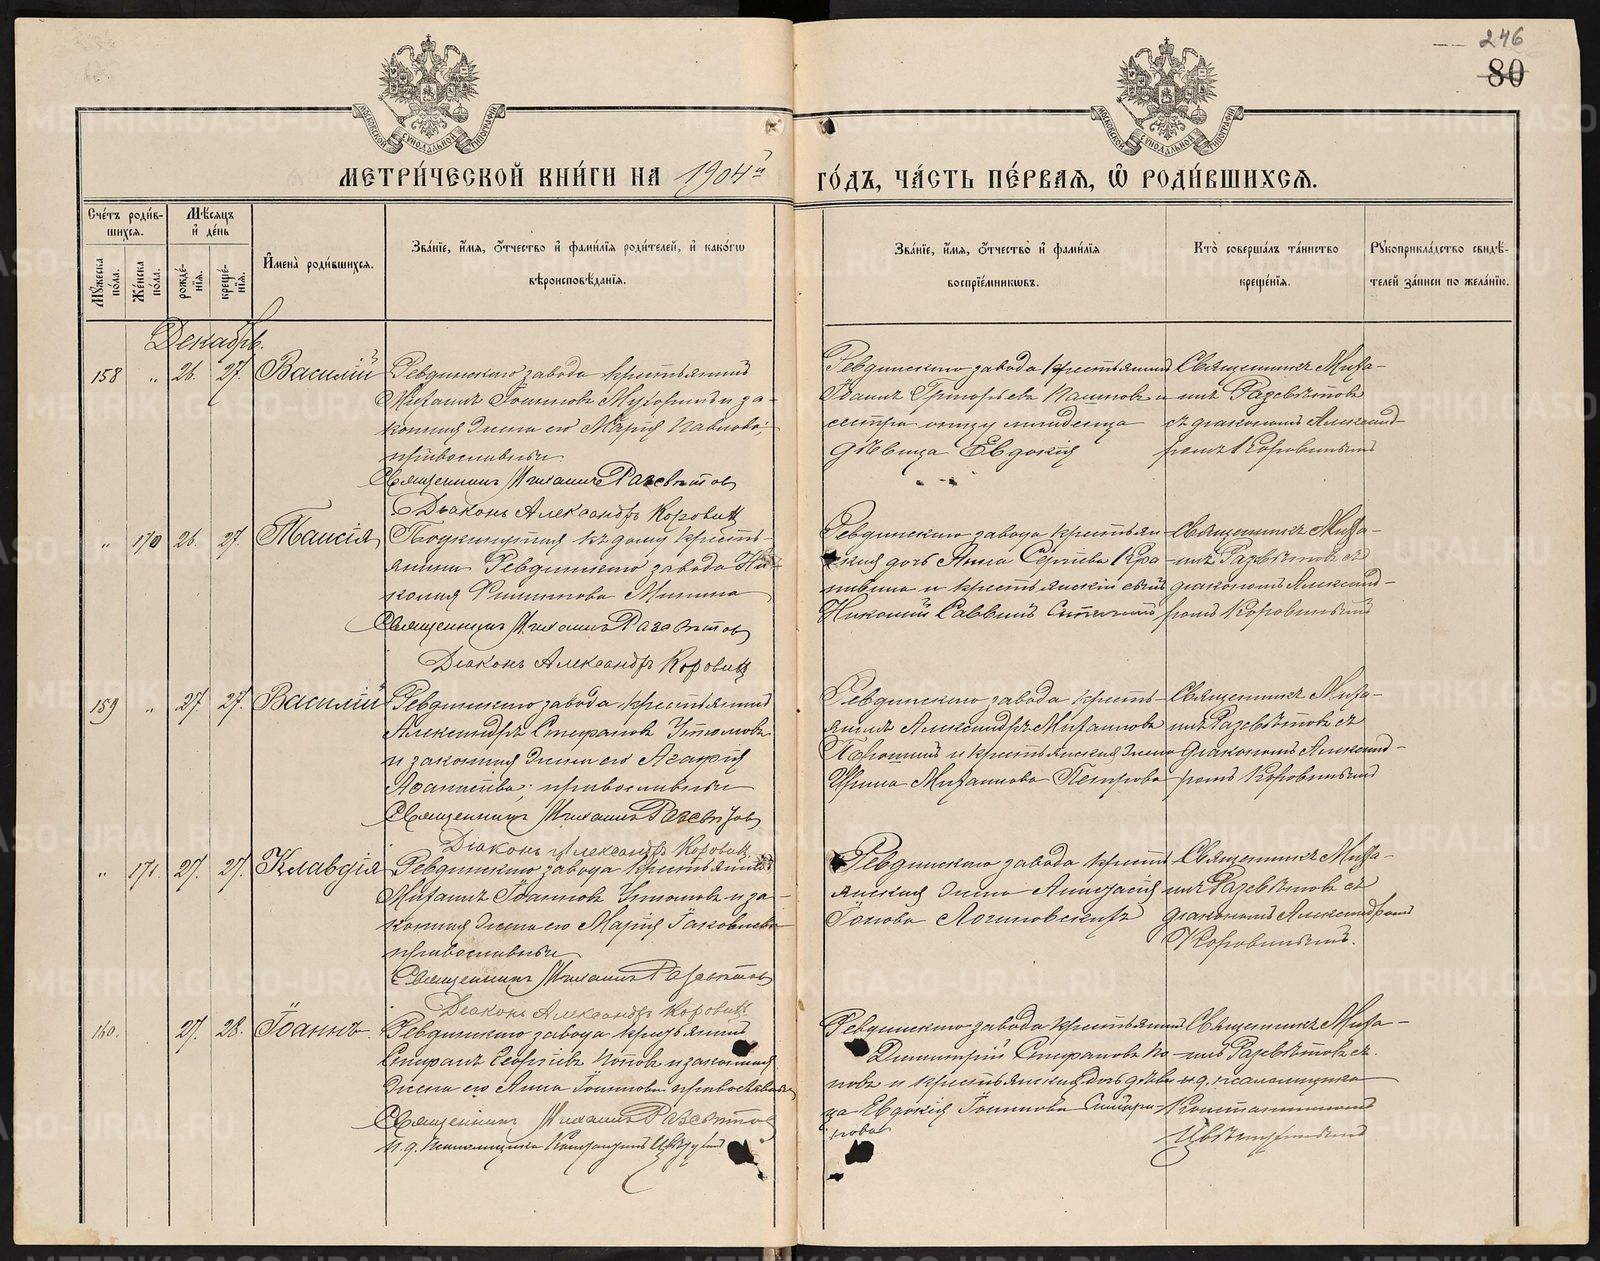 246
80
МОСКОВСКОЙ СѴНОДАЛЬНОЙ ТИПОГРАФІИ
МОСКОВСКОЙ СѴНОДАЛЬНОЙ ТИПОГРАФІИ
МЕТРИ́ЧЕСКОЙ КНИ́ГИ НА 1904й ГО́ДЪ, ЧА́СТЬ ПЕ́РВАЯ, Ѡ РОДИ́ВШИХСЯ.
Сче́тъ роди́в-
шихся.
Мѣ́сяцъ
и҆ де́нь
Мꙋ́жеска по́ла.
Же́нска по́ла.
рожде́-
нїя.
креще́-
нїя.
И҆мена̀ роди́вшихся.
Зва́нїе, и҆́мя, ѻ҆́тчество и҆ фами́лїя роди́телей, и҆ како́гѡ
вѣроисповѣ́данїя.
Зва́нїе, и҆́мя, ѻ҆́тчество и҆ фами́лїя
воспрїе́мникѡвъ.
Кто̀ соверша́лъ та́инство
креще́нїя.
Рꙋкоприкла́дство свидѣ́-
телей за́писи по жела́нїю.
Декабрь.
158 " 26. 27. Василій
Ревдинскаго завода крестьянинъ
Михаилъ Іоанновъ и за-
конная жена его Марія Павлова;
православные
Священникъ Михаилъ Разсвѣтовъ
Діаконъ Александръ Коровинъ
Ревдинскаго завода крестьянинъ
Іоаннъ Григорьевъ и
сестра отцу младенца
дѣвица Евдокія
Священникъ Миха-
илъ Разсвѣтовъ
съ діакономъ Александ-
ромъ Коровинымъ
" 170 26. 27. Таисія
Подкинутая къ дому кресть-
янина Ревдинскаго завода Ни-
колая Филиппова
Священникъ Михаилъ Разсвѣтовъ
Діаконъ Александръ Коровинъ
Ревдинскаго завода крестьян-
ская дочь Анна Сергѣева
и крестьянскій сынъ
Николай Саввинъ
Священникъ Миха-
илъ Разсвѣтовъ съ
діакономъ Александ-
ромъ Коровинымъ
159 " 27. 27. Василій
Ревдинскаго завода крестьянинъ
Александръ Стефановъ
и законная жена его Агафія
православные
Священникъ Михаилъ Разсвѣтовъ
Діаконъ Александръ Коровинъ
Ревдинскаго завода кресть-
янинъ Александръ Михайловъ
и крестьянская жена
Ирина Михайлова Петрова
Священникъ Миха-
илъ Разсвѣтовъ съ
діакономъ Александ-
ромъ Коровинымъ
" 171. 27. 27. Клавдія
Ревдинскаго завода крестьянинъ
Михаилъ Іоанновъ и за-
конная жена его Марія Іаковлева
православные
Священникъ Михаилъ Разсвѣтовъ
Діаконъ Александръ Коровинъ
Ревдинскаго завода кресть-
янская жена Анастасія
Іонова Логиновскихъ
Священникъ Миха-
илъ Разсвѣтовъ съ
діакономъ Александромъ
Коровинымъ.
160. 27. 28. Іоаннъ
Ревдинскаго завода крестьянинъ
Стефанъ Георгіевъ Поповъ и законная
жена его Анна Іоаннова православные
Священникъ Михаилъ Разсвѣтовъ
И. д. псаломщика
Ревдинскаго завода крестьянинъ
Димитрій Стефановъ По-
повъ и крестьянская дочь дѣви-
ца Евдокія Іоаннова
Священникъ Миха-
илъ Разсвѣтовъ съ
и. д. псаломщика
Константиномъ